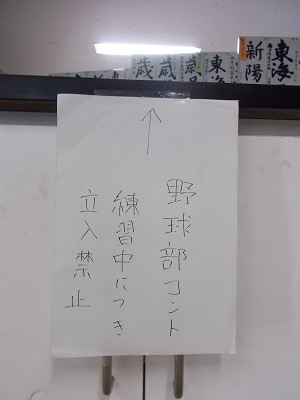 野球部コント
練習中につき
立入禁止
東海
新陽
東海
歳
歳